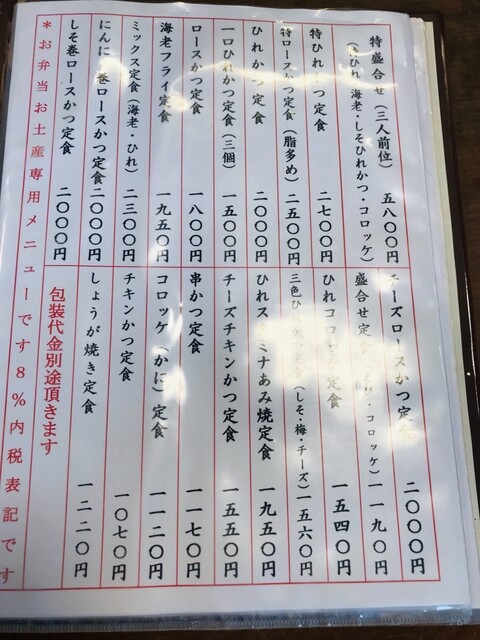 特盛合せ（三人前位） 五八〇〇円
（特ひれ・海老・しそひれかつ・コロッケ）
特ひれかつ定食 二七〇〇円
特ロースかつ定食（脂多め） 二五〇〇円
ひれかつ定食 二〇〇〇円
一口ひれかつ定食（三個） 一五〇〇円
ロースかつ定食 一八〇〇円
海老フライ定食 一九五〇円
ミックス定食（海老・ひれ） 二三〇〇円
にんにく巻ロースかつ定食 二〇〇〇円
しそ巻ロースかつ定食 二〇〇〇円
チーズロースかつ定食 二〇〇〇円
盛合せ定 ・コロッケ） 一一九〇円
ひれコロッケ定食 一五四〇円
三色ひれかつ定食（しそ・梅・チーズ） 一五六〇円
ひれスタミナあみ焼定食 一九五〇円
チーズチキンかつ定食 一五五〇円
串かつ定食 一一七〇円
コロッケ（かに）定食 一一二〇円
チキンかつ定食 一〇七〇円
しょうが焼き定食 一二二〇円
包装代金別途頂きます
＊お弁当お土産専用メニューです8％内税表記です